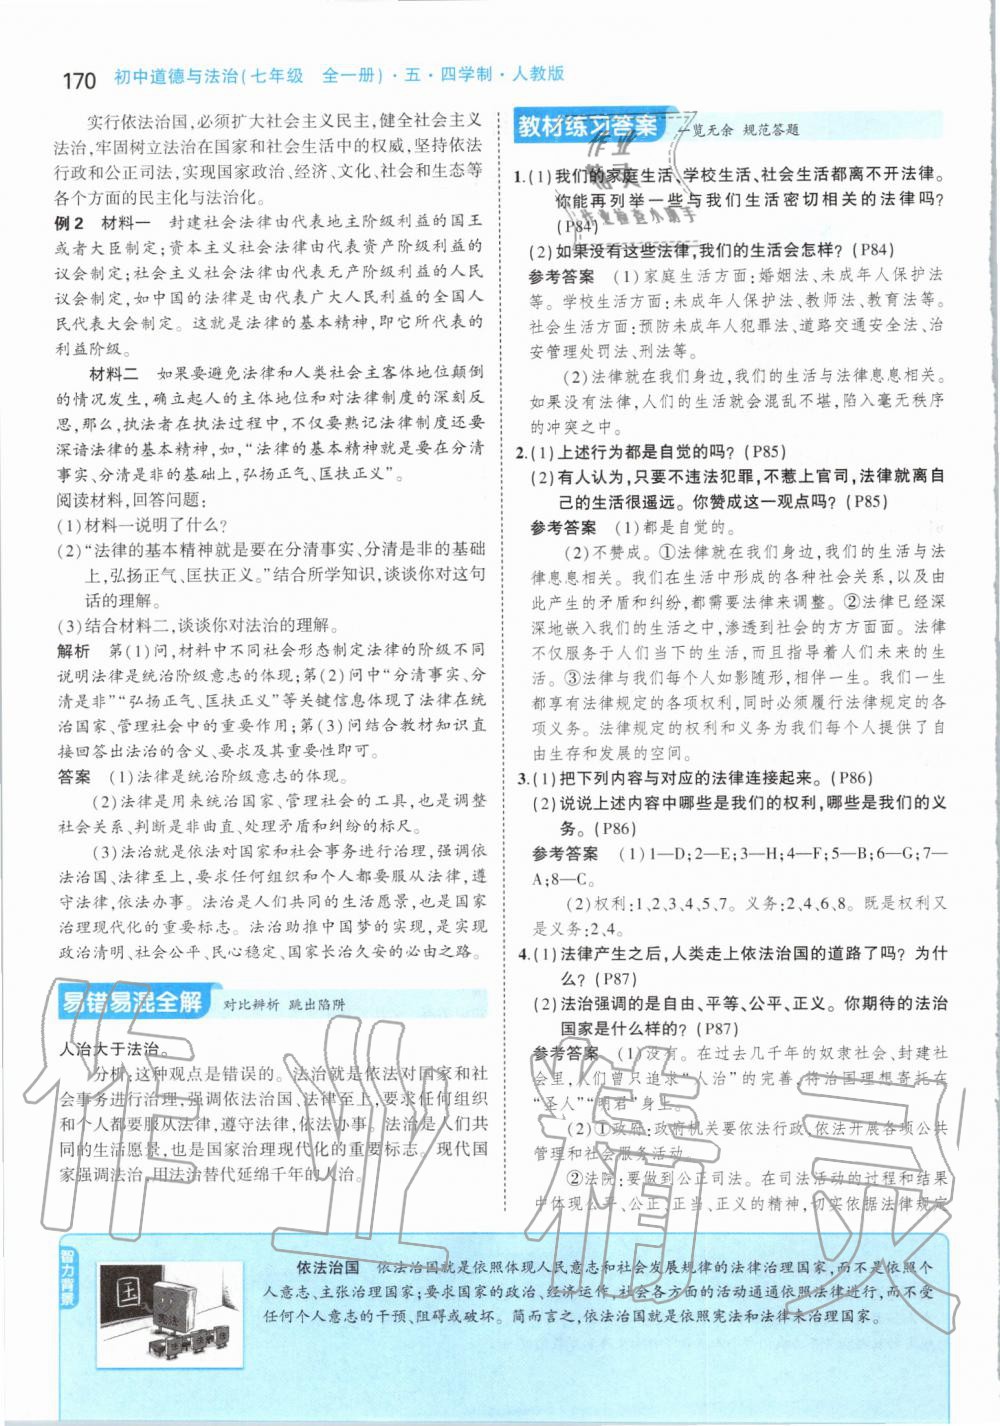 170 初中道德与法治(七年级 全一册)·五·四学制·人教版
实行依法治国,必须扩大社会主义民主,健全社会主义
法治,牢固树立法治在国家和社会生活中的权威,坚持依法
行政和公正司法,实现国家政治、经济、文化、社会和生态等
各个方面的民主化与法治化。
例2 材料一 封建社会法律由代表地主阶级利益的国王
或者大臣制定;资本主义社会法律由代表资产阶级利益的
议会制定;社会主义社会法律由代表无产阶级利益的人民
议会制定,如中国的法律是由代表广大人民利益的全国人
民代表大会制定。这就是法律的基本精神,即它所代表的
利益阶级。
材料二 如果要避免法律和人类社会主客体地位颠倒
的情况发生,确立起人的主体地位和对法律制度的深刻反
思,那么,执法者在执法过程中,不仅要熟记法律制度还要
深谙法律的基本精神,如,“法律的基本精神就是要在分清
事实、分清是非的基础上,弘扬正气、匡扶正义”。
阅读材料,回答问题:
(1)材料一说明了什么?
(2)“法律的基本精神就是要在分清事实、分清是非的基础
上,弘扬正气、匡扶正义。”结合所学知识,谈谈你对这句
话的理解。
(3)结合材料二,谈谈你对法治的理解。
解析 第(1)问,材料中不同社会形态制定法律的阶级不同
说明法律是统治阶级意志的体现;第(2)问中“分清事实、分
清是非”“弘扬正气、匡扶正义”等关键信息体现了法律在统
治国家、管理社会中的重要作用;第(3)问结合教材知识直
接回答出法治的含义、要求及其重要性即可。
答案 (1)法律是统治阶级意志的体现。
(2)法律是用来统治国家、管理社会的工具,也是调整
社会关系、判断是非曲直、处理矛盾和纠纷的标尺。
(3)法治就是依法对国家和社会事务进行治理,强调依
法治国、法律至上,要求任何组织和个人都要服从法律,遵
守法律,依法办事。法治是人们共同的生活愿景,也是国家
治理现代化的重要标志。法治助推中国梦的实现,是实现
政治清明、社会公平、民心稳定、国家长治久安的必由之路。
易错易混全解 对比辨析 跳出陷阱
人治大于法治。
分析:这种观点是错误的。法治就是依法对国家和社
会事务进行治理,强调依法治国、法律至上,要求任何组织
和个人都要服从法律,遵守法律,依法办事。法治是人们共
同的生活愿景,也是国家治理现代化的重要标志。现代国
家强调法治,用法治替代延绵千年的人治。
教材练习答案 一览无余 规范答题
1.(1)我们的家庭生活、学校生活、社会生活都离不开法律。
你能再列举一些与我们生活密切相关的法律吗?
(P84)
(2)如果没有这些法律,我们的生活会怎样?(P84)
参考答案 (1)家庭生活方面:婚姻法、未成年人保护法
等。学校生活方面:未成年人保护法、教师法、教育法等。
社会生活方面:预防未成年人犯罪法、道路交通安全法、治
安管理处罚法、刑法等。
(2)法律就在我们身边,我们的生活与法律息息相关。
如果没有法律,人们的生活就会混乱不堪,陷入毫无秩序
的冲突之中。
2.(1)上述行为都是自觉的吗?(P85)
(2)有人认为,只要不违法犯罪,不惹上官司,法律就离自
己的生活很遥远。你赞成这一观点吗?(P85)
参考答案 (1)都是自觉的。
(2)不赞成。①法律就在我们身边,我们的生活与法
律息息相关。我们在生活中形成的各种社会关系,以及由
此产生的矛盾和纠纷,都需要法律来调整。②法律已经深
深地嵌入我们的生活之中,渗透到社会的方方面面。法律
不仅服务于人们当下的生活,而且指导着人们未来的生
活。③法律与我们每个人如影随形,相伴一生。我们一生
都享有法律规定的各项权利,同时必须履行法律规定的各
项义务。法律规定的权利和义务为我们每个人提供了自
由生存和发展的空间。
3.(1)把下列内容与对应的法律连接起来。(P86)
(2)说说上述内容中哪些是我们的权利,哪些是我们的义
务。(P86)
参考答案 (1)1—D;2—E;3—H;4—F;5—B;6—G;7—
A;8—C。
(2)权利:1、2、3、4、5、7。义务:2、4、6、8。既是权利又
是义务:2、4。
4.(1)法律产生之后,人类走上依法治国的道路了吗?为什
么?(P87)
(2)法治强调的是自由、平等、公平、正义。你期待的法治
国家是什么样的?(P87)
参考答案 (1)没有。在过去几千年的奴隶社会、封建社
会里,人们曾只追求“人治”的完善,将治国理想寄托在
“圣人”“明君”身上。
(2)①政府:政府机关要依法行政,依法开展各项公共
管理和社会服务活动。
②法院:要做到公正司法。在司法活动的过程和结果
中体现公平、公正、正义的精神,切实依据法律规定
智力背景
依法治国 依法治国就是依照体现人民意志和社会发展规律的法律治理国家,而不是依照个
人意志、主张治理国家;要求国家的政治、经济运作、社会各方面的活动通通依照法律进行,而不受
任何个人意志的干预、阻碍或破坏。简而言之,依法治国就是依照宪法和法律来治理国家。
宪法
作业精灵
作业检查小助手
作业精灵